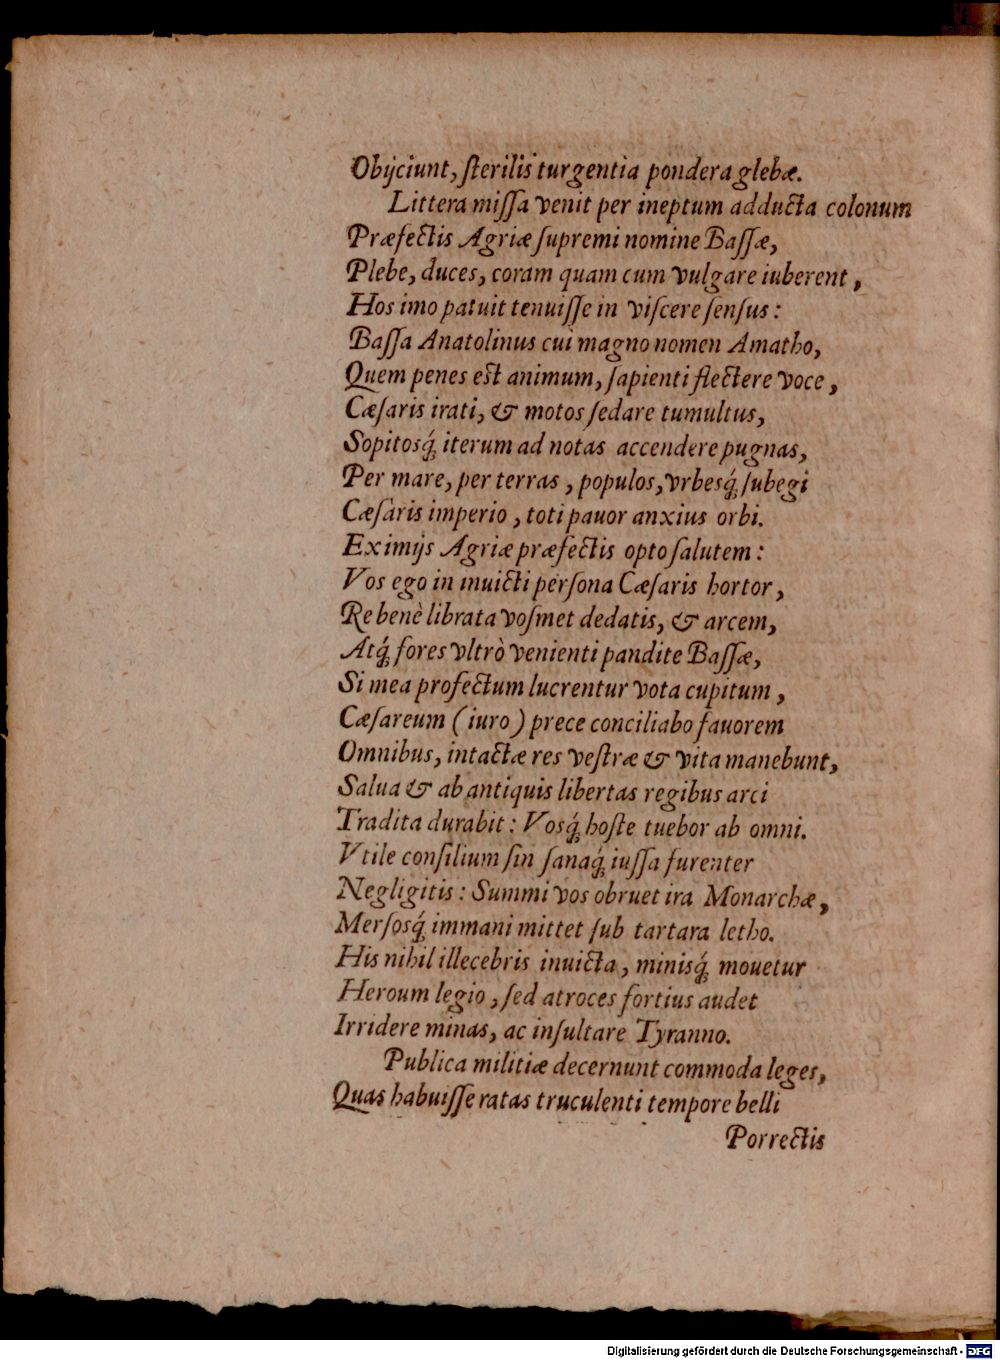 Obijciunt, ſterilis turgentia pondera glebæ.
Littera miſſa venit per ineptum adducta colonum
Præfectis Agriæ ſupremi nomine Baſſæ,
Plebe, duces, coram quam cum vulgare iuberent,
Hos imo patuit tenuiſſe in viſcere ſenſus:
Baſſa Anatolinus cui magno nomen Amatho,
Quem penes est animum, ſapienti flectere voce,
Cæſaris irati, & motos ſedare tumultus,
Sopitosq́ iterum ad notas accendere pugnas,
Per mare, per terras, populos, vrbesq́ ſubegi
Cæſaris imperio, toti pauor anxius orbi.
Eximijs Agriæ præfectis opto ſalutem:
Vos ego in inuicti perſona Cæſaris hortor,
Re benè librata voſmet dedatis, & arcem,
Atq́ fores vltrò venienti pandite Baſſæ,
Si mea profectum lucrentur vota cupitum,
Cæſareum (iuro) prece conciliabo fauorem
Omnibus, intactæ res veſtræ & vita manebunt,
Salua & ab antiquis libertas regibus arci
Tradita durabit: Vosq́ hoſte tuebor ab omni.
Vtile conſilium ſin ſanaq́ iuſſa furenter
Negligitis: Summi vos obruet ira Monarchæ,
Merſosq́ immani mittet ſub tartara letho.
His nihil illecebris inuicta, minisq́ mouetur
Heroum legio, ſed atroces fortius audet
Irridere minas, ac inſultare Tyranno.
Publica militiæ decernunt commoda leges,
Quas habuiſſe ratas truculenti tempore belli
Porrectis
Digitalisierung gefördert durch die Deutsche Forschungsgemeinschaft - DFG